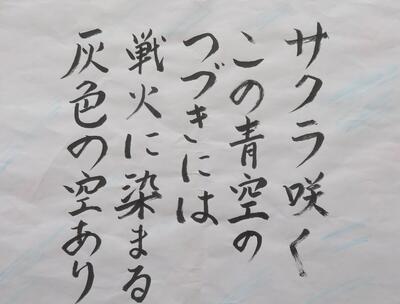 サクラ咲く
この青空の
つづきには
戦火に染まる
灰色の空あり